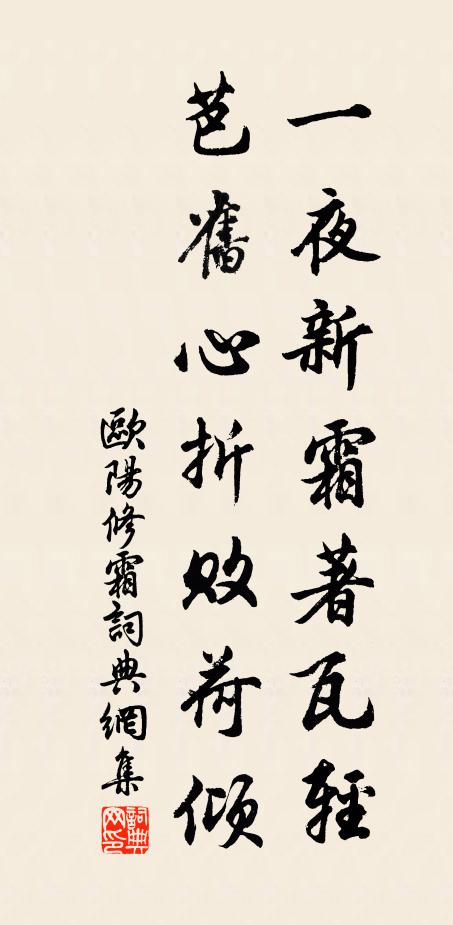 一夜新霜著瓦輕
芭舊心折敗荷傾
歐陽修霜詞典網集
詞典
网印